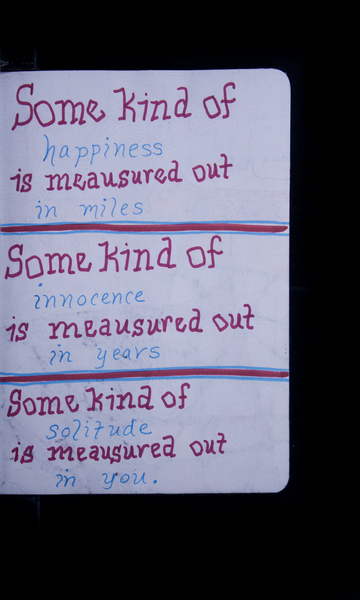 Some kind of
happiness
is meausured out
in miles
Some kind of
innocence
is meausured out
in years
Some kind of
solitude
is meausured out
in you.